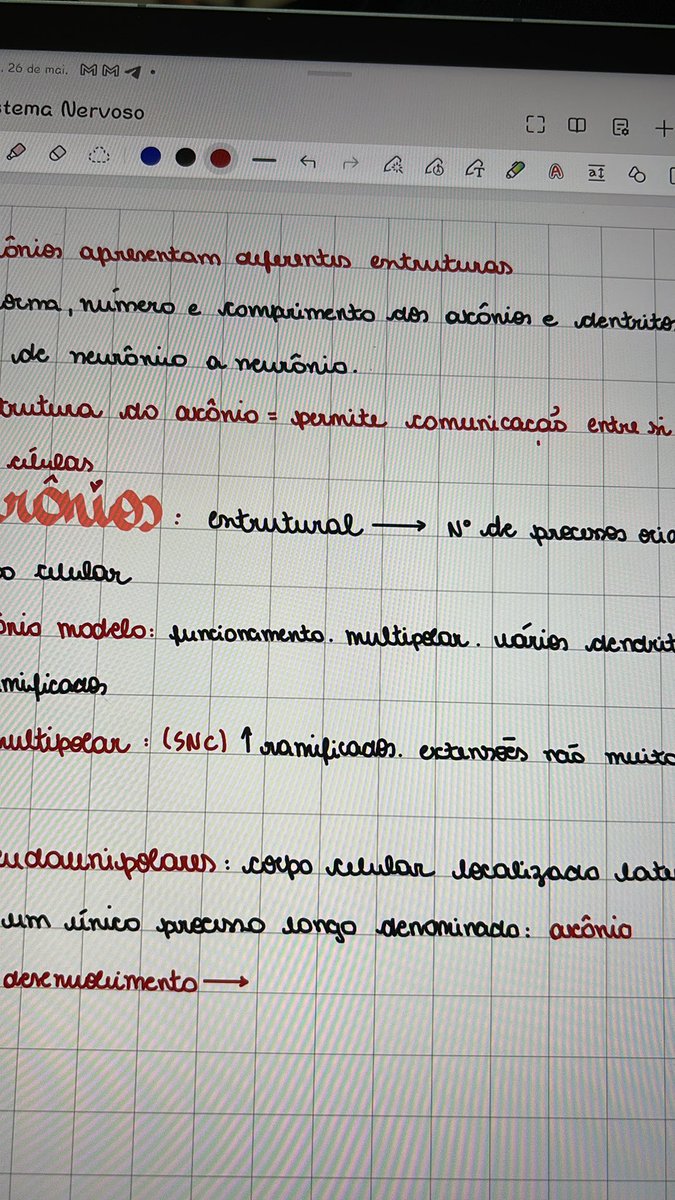 . 26 de mai.
stema Nervoso
ônios apresentam diferentes entruturas
orma, número e comprimento dos axônios e dentrito
de neurônio a neurônio.
trutura do axônio = permite comunicação entre si
células
rônios: entrutural → Nº de processos orig
o celular
ônio modelo: funcionamento. multipolar. vários dendrit
mificados
multipolar: (SNC) ↑ ramificados. extensões não muito
eudounipolares: corpo celular localizado late
um único processo longo denominado: axônio
desenvolvimento →